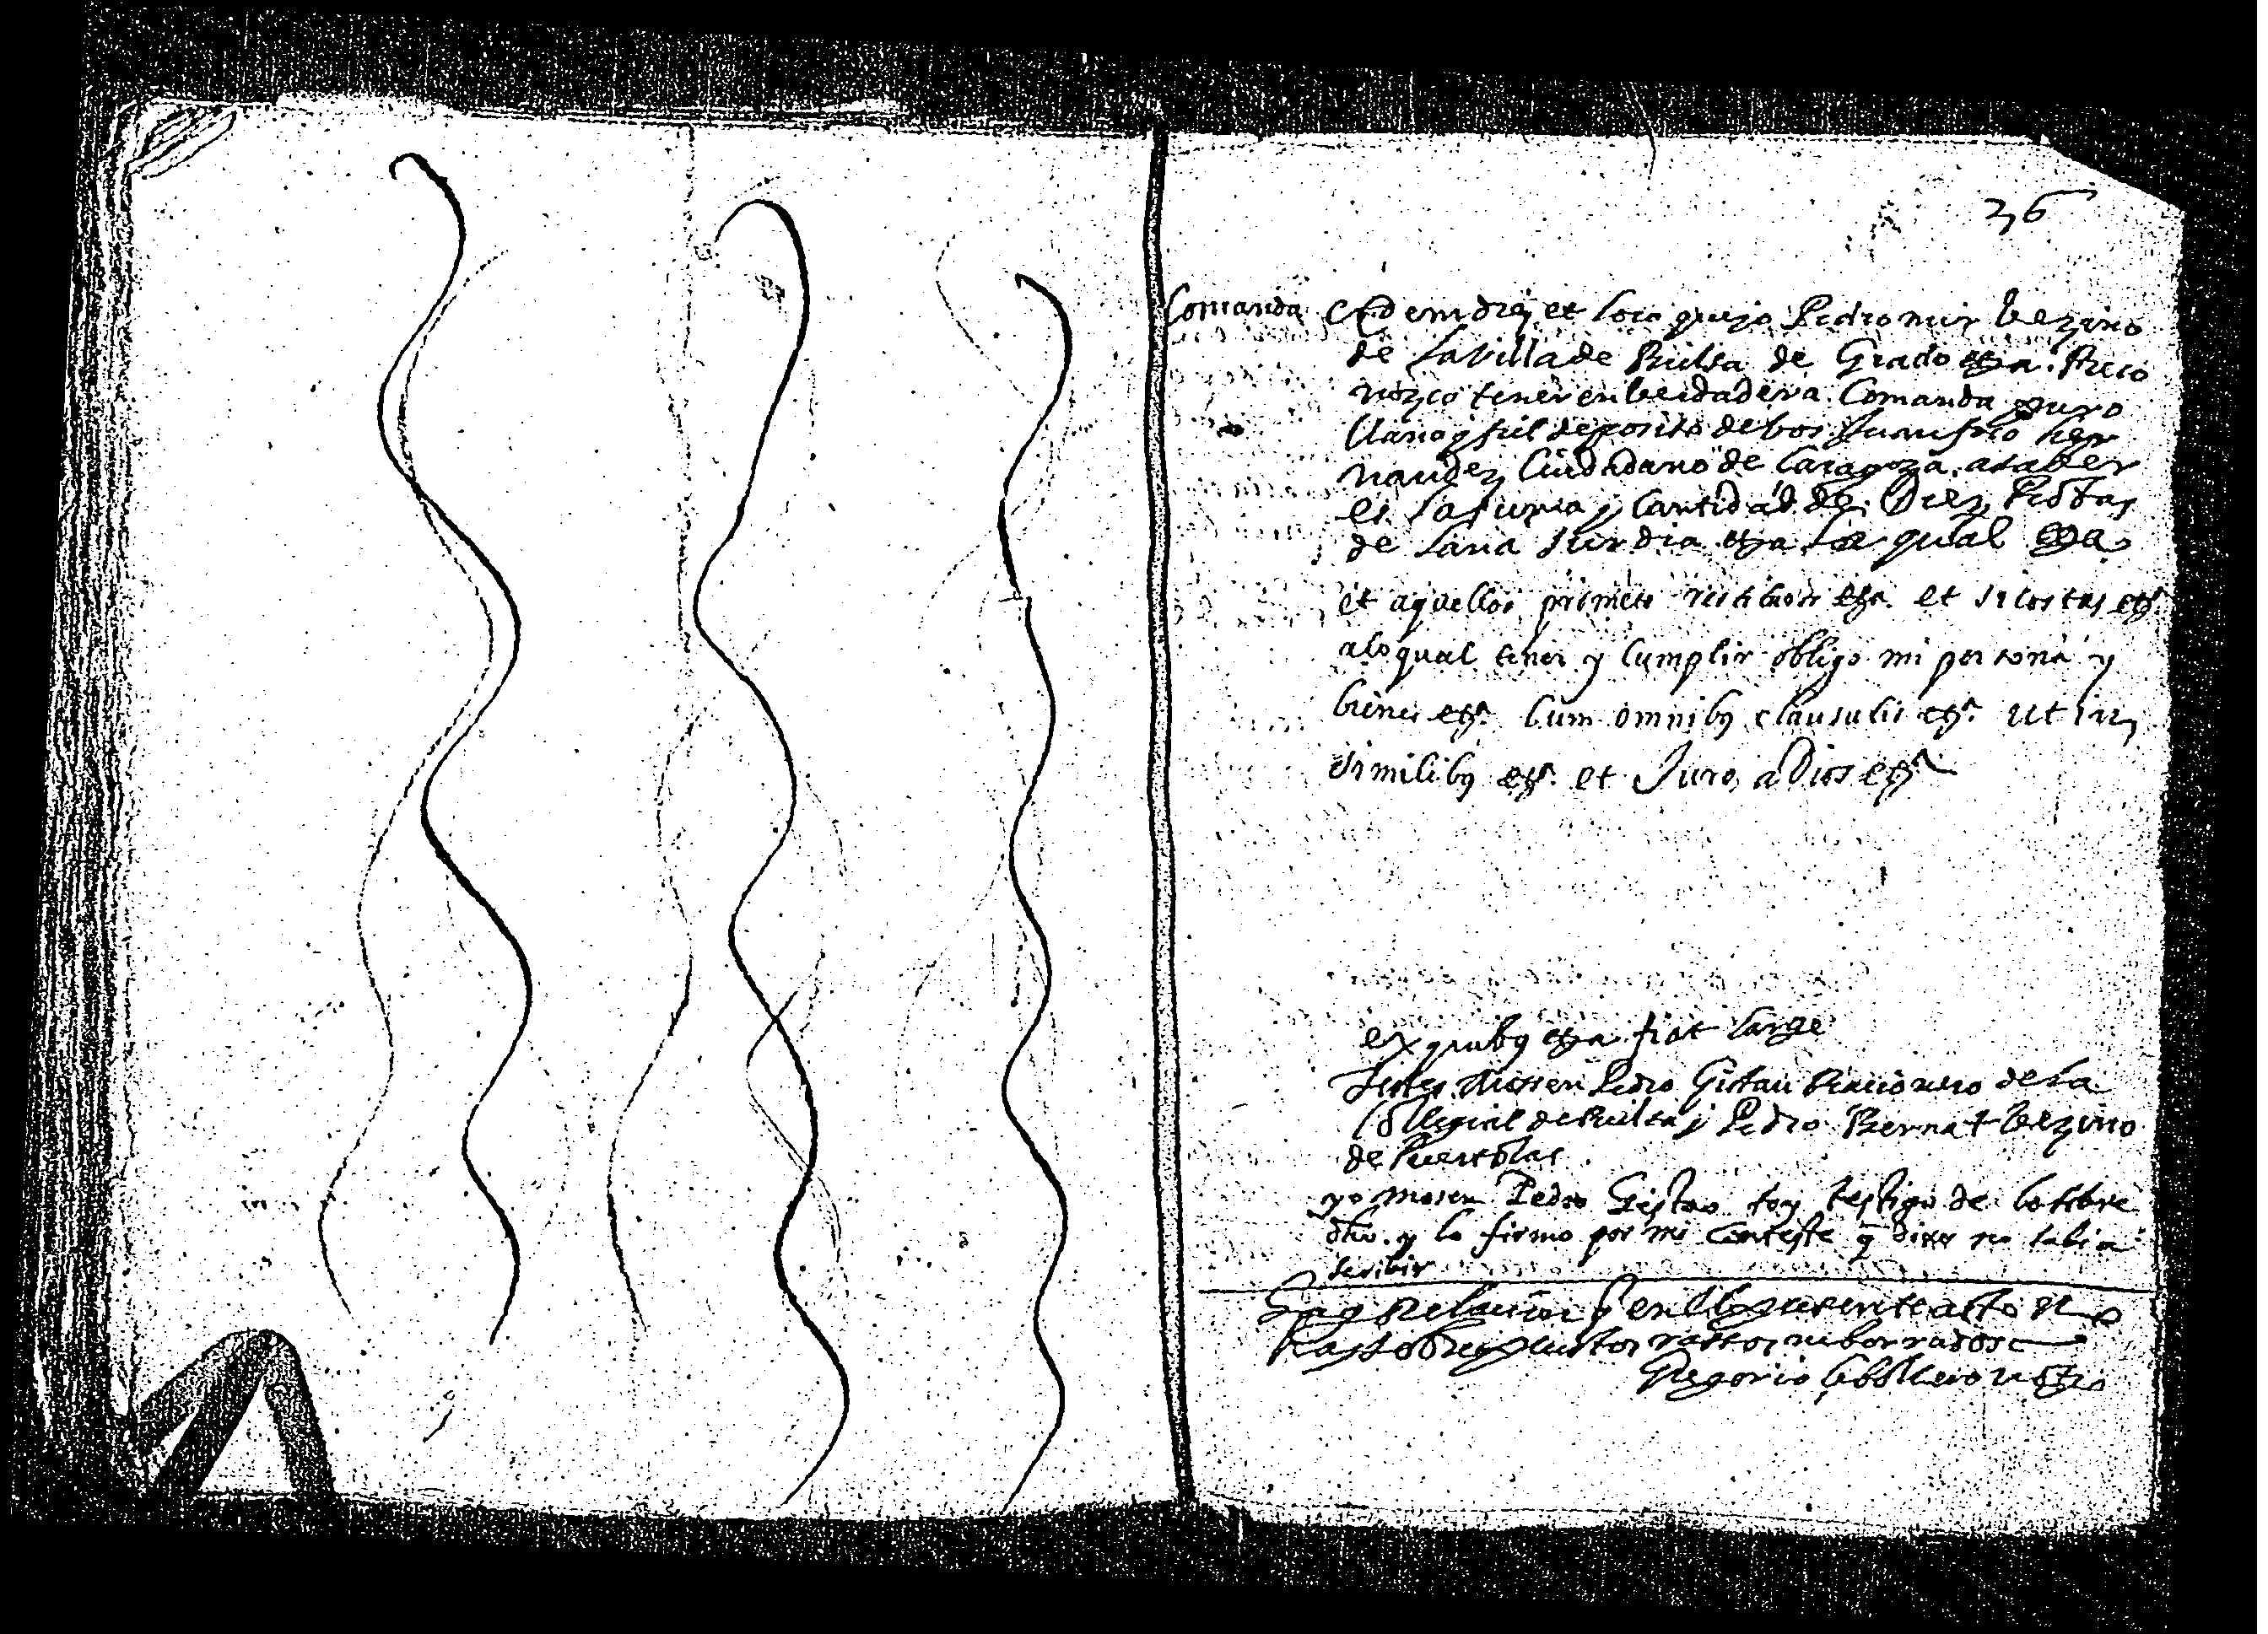 36
Comanda Eodem die et loco que yo Pedro mir bezino
de la billa de Builsa de Grado etza. Reco
nozco tener en berdadera Comanda puro
llano y fiel deposito de bos Juan frco her
nandez Ciudadano de Caragoza. asaber
es la suma y Cantidad de Diez Robas
de lana Surdia etza La qual etza
et aquellos prometo restituir etza. et si costas etza.
alo qual tener y cumplir obligo mi persona y
bienes etza. Cum omnibus clausulis etza. ut in
similibus etza. et Juro a Dios etza
ex quibus etza fiat large
Testes Mossen Pedro Gistau Racionero de la
Collegial de Builsa y Pedro Bernat bezino
de Puertolas
yo mosen Pedro Gistao soy testigo de lo sobre
dho. y lo firmo por mi Conteste q dixo no sabia
scribir
en el presente acto no
ni borrados
Gregorio Cebollero notro